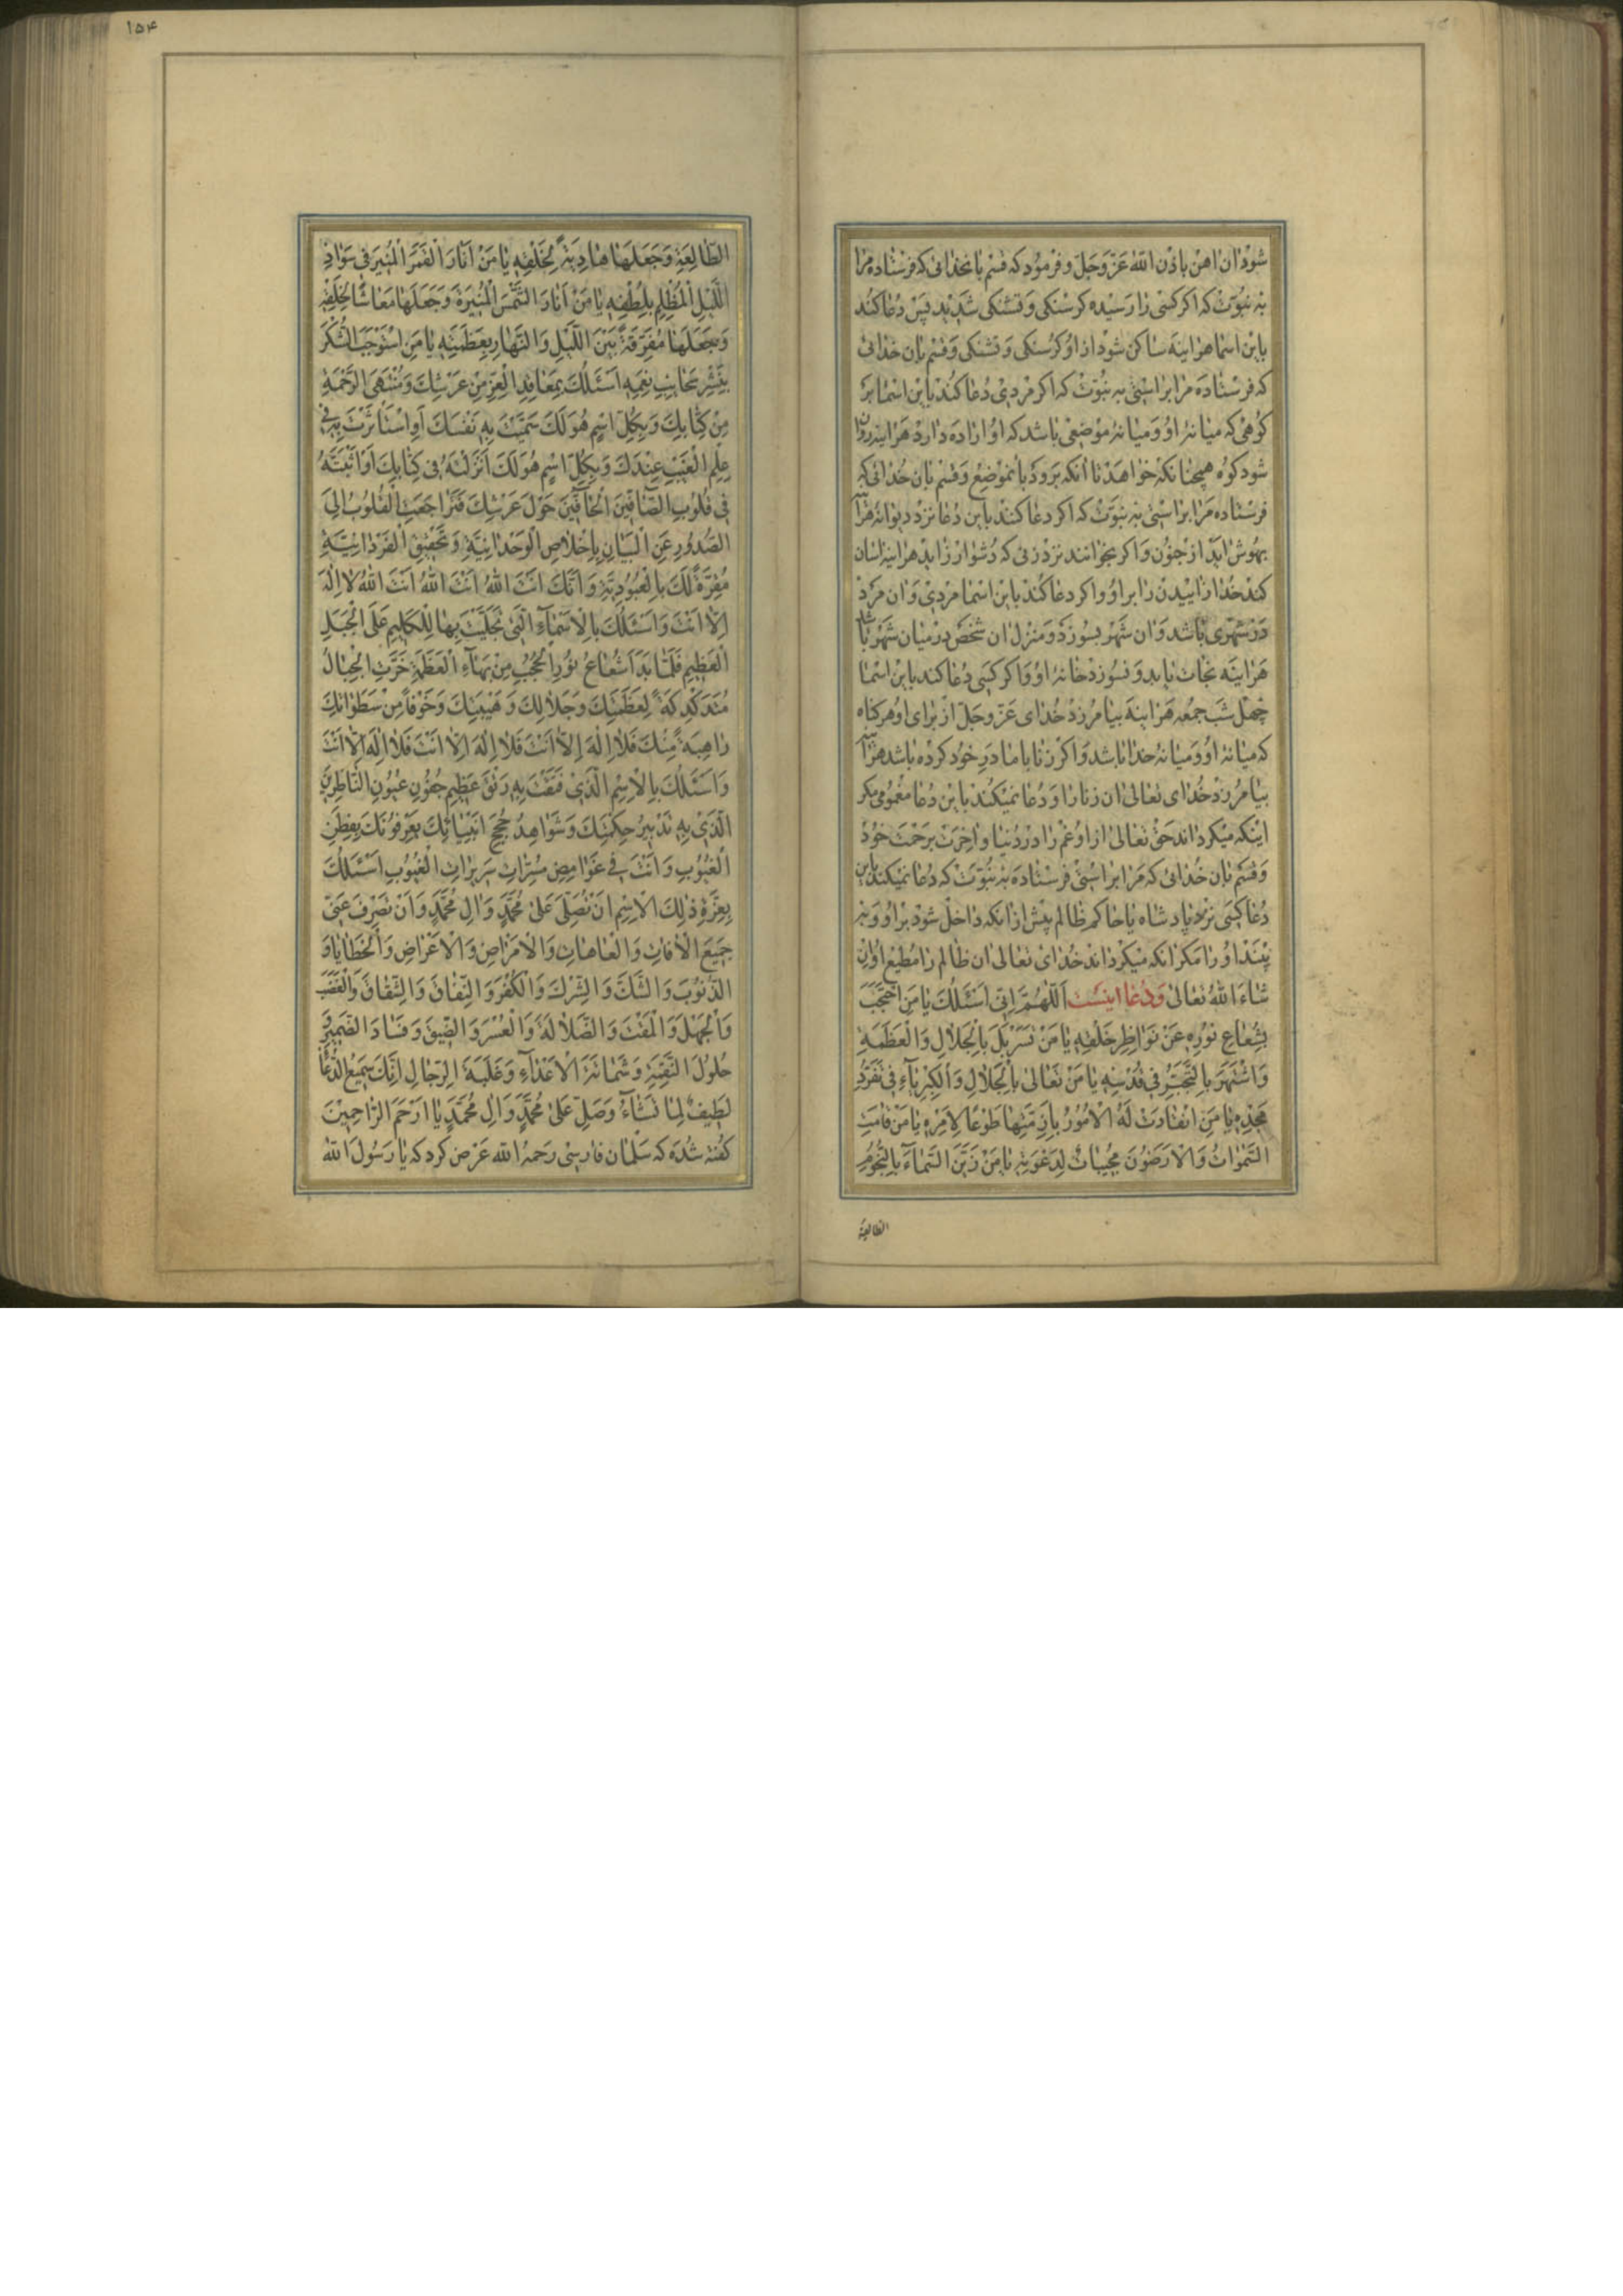 شود ان اهن باذن الله عز وجل و فرمود که قسم بانخدائی که فرستاده مرا
به نبوت که اکر کسی را رسیده کرسنکی و تشنکی شدید پس دعا کند
باین اسما هراینه ساکن شود از او کرسنکی و تشنکی و قسم بان خدائی
که فرستاده مرا براستی به نبوت که اکر مردی دعا کند باین اسما بر
کوهی که میانهٔ او و میانهٔ موضعی باشد که او اراده دارد هراینه روان
شود کوه همچنانکه خواهد تا انکه برود بانموضع و قسم بان خدائی که
فرستاده مرا براستی به نبوت که اکر دعا کنند باین دعا نزد دیوانه هراینه
بهوش اید از جنون و اکر بخوانند نزد زنی که دشوار زاید هراینه اسان
کند خدا زاییدن را بر او و اکر دعا کند باین اسما مردی و ان مرد
در شهری باشد و ان شهر بسوزد و منزل ان شخص در میان شهر باشد
هراینه نجات یابد و نسوزد خانهٔ او و اکر کسی دعا کند باین اسما
چهل شب جمعه هراینه بیامرزد خدای عز وجل از برای او هر کناه
که میانهٔ او و میانهٔ خدا باشد و اکر زنا با مادر خود کرده باشد هراینه
بیامرزد خدای تعالی ان زنا را و دعا نمیکند باین دعا مغمومی مکر
اینکه میکرداند حق تعالی از او غم را در دنیا و اخرت برحمت خود
و قسم بان خدائی که مرا براستی فرستاده به نبوت که دعا نمیکند باین
دعا کسی نزد پادشاه یا حاکم ظالم پیش از انکه داخل شود بر او و به
بیند او را مکر انکه میکرداند خدای تعالی ان ظالم را مطیع او ان
شاء الله تعالی و دعا اینست اَللّٰهُمَّ اِنّی اَسْئَلُکَ یٰا مَنِ احْتَجَبَ
بِشُعٰاعِ نُورِهِ عَنْ نَوٰاظِرِ خَلْقِهِ یٰا مَنْ تَسَرْبَلَ بِالْجَلٰالِ وَالْعَظَمَةِ
وَاشْتَهَرَ بِالتَّجَبُّرِ فی قُدْسِهِ یٰا مَنْ تَعٰالیٰ بِالْجَلٰالِ وَالْکِبْرِیٰآءِ فی تَفَرُّدِ
مَجْدِهِ یٰا مَنِ انْقٰادَتْ لَهُ الْاُمُورُ بِاَزِمَّتِهٰا طَوْعًا لِاَمْرِهِ یٰا مَنْ قٰامَتِ
السَّمٰوٰاتُ وَالْاَرَضُونَ مُجیبٰاتٌ لِدَعْوَتِهِ یٰا مَنْ زَیَّنَ السَّمٰآءَ بِالنُّجُومِ
الطالعة
۱۵۴
الطّٰالِعَةِ وَجَعَلَهٰا هٰادِیَةً لِخَلْقِهِ یٰا مَنْ اَنٰارَ الْقَمَرَ الْمُنیرَ فی سَوٰادِ
اللَّیْلِ الْمُظْلِمِ بِلُطْفِهِ یٰا مَنْ اَنٰارَ الشَّمْسَ الْمُنیرَةَ وَجَعَلَهٰا مَعٰاشًا لِخَلْقِهِ
وَجَعَلَهٰا مُفَرِّقَةً بَیْنَ اللَّیْلِ وَالنَّهٰارِ بِعَظَمَتِهِ یٰا مَنِ اسْتَوْجَبَ الشُّکْرَ
بِنَشْرِ سَحٰائِبِ نِعَمِهِ اَسْئَلُکَ بِمَعٰاقِدِ الْعِزِّ مِنْ عَرْشِکَ وَمُنْتَهَی الرَّحْمَةِ
مِنْ کِتٰابِکَ وَبِکُلِّ اسْمٍ هُوَ لَکَ سَمَّیْتَ بِهِ نَفْسَکَ اَوِ اسْتَأْثَرْتَ بِهِ فی
عِلْمِ الْغَیْبِ عِنْدَکَ وَبِکُلِّ اسْمٍ هُوَ لَکَ اَنْزَلْتَهُ فی کِتٰابِکَ اَوْ اَثْبَتَّهُ
فی قُلُوبِ الصّٰآفّینَ الْحٰآفّینَ حَوْلَ عَرْشِکَ فَتَرٰاجَعَتِ الْقُلُوبُ اِلَی
الصُّدُورِ عَنِ الْبَیٰانِ بِاِخْلٰاصِ الْوَحْدٰانِیَّةِ وَتَحْقیقِ الْفَرْدٰانِیَّةِ
مُقِرَّةً لَکَ بِالْعُبُودِیَّةِ وَاَنَّکَ اَنْتَ اللهُ اَنْتَ اللهُ اَنْتَ اللهُ لٰا اِلٰهَ
اِلّٰا اَنْتَ وَاَسْئَلُکَ بِالْاَسْمٰآءِ الَّتی تَجَلَّیْتَ بِهٰا لِلْکَلیمِ عَلَی الْجَبَلِ
الْعَظیمِ فَلَمّٰا بَدٰا شُعٰاعُ نُورِ الْحُجُبِ مِنْ بَهٰآءِ الْعَظَمَةِ خَرَّتِ الْجِبٰالُ
مُتَدَکْدِکَةً لِعَظَمَتِکَ وَجَلٰالِکَ وَهَیْبَتِکَ وَخَوْفًا مِنْ سَطَوٰاتِکَ
رٰاهِبَةً مِنْکَ فَلٰا اِلٰهَ اِلّٰا اَنْتَ فَلٰا اِلٰهَ اِلّٰا اَنْتَ فَلٰا اِلٰهَ اِلّٰا اَنْتَ
وَاَسْئَلُکَ بِالْاِسْمِ الَّذی فَتَقْتَ بِهِ رَتْقَ عَظیمِ جُفُونِ عُیُونِ النّٰاظِرینَ
الَّذی بِهِ تَدْبیرُ حِکْمَتِکَ وَشَوٰاهِدُ حُجَجِ اَنْبِیٰائِکَ یَعْرِفُونَکَ بِفِطَنِ
الْقُلُوبِ وَاَنْتَ فی غَوٰامِضِ مُسَرّٰاتِ سَریرٰاتِ الْغُیُوبِ اَسْئَلُکَ
بِعِزَّةِ ذٰلِکَ الْاِسْمِ اَنْ تُصَلِّیَ عَلیٰ مُحَمَّدٍ وَاٰلِ مُحَمَّدٍ وَاَنْ تَصْرِفَ عَنّی
جَمیعَ الْاٰفٰاتِ وَالْعٰاهٰاتِ وَالْاَمْرٰاضِ وَالْاَعْرٰاضِ وَالْخَطٰایٰا وَ
الذُّنُوبَ وَالشَّکَّ وَالشِّرْکَ وَالْکُفْرَ وَالنِّفٰاقَ وَالشِّقٰاقَ وَالْغَضَبَ
وَالْجَهْلَ وَالْمَقْتَ وَالضَّلٰالَةَ وَالْعُسْرَ وَالضّیقَ وَفَسٰادَ الضَّمیرِ وَ
حُلُولَ النَّقِمَةِ وَشَمٰاتَةَ الْاَعْدٰآءِ وَغَلَبَةَ الرِّجٰالِ اِنَّکَ سَمیعُ الدُّعٰآءِ
لَطیفٌ لِمٰا تَشٰآءُ وَصَلِّ عَلیٰ مُحَمَّدٍ وَاٰلِ مُحَمَّدٍ یٰا اَرْحَمَ الرّٰاحِمینَ
کفته شده که سلمان فارسی رحمه الله عرض کرد که یا رسول الله